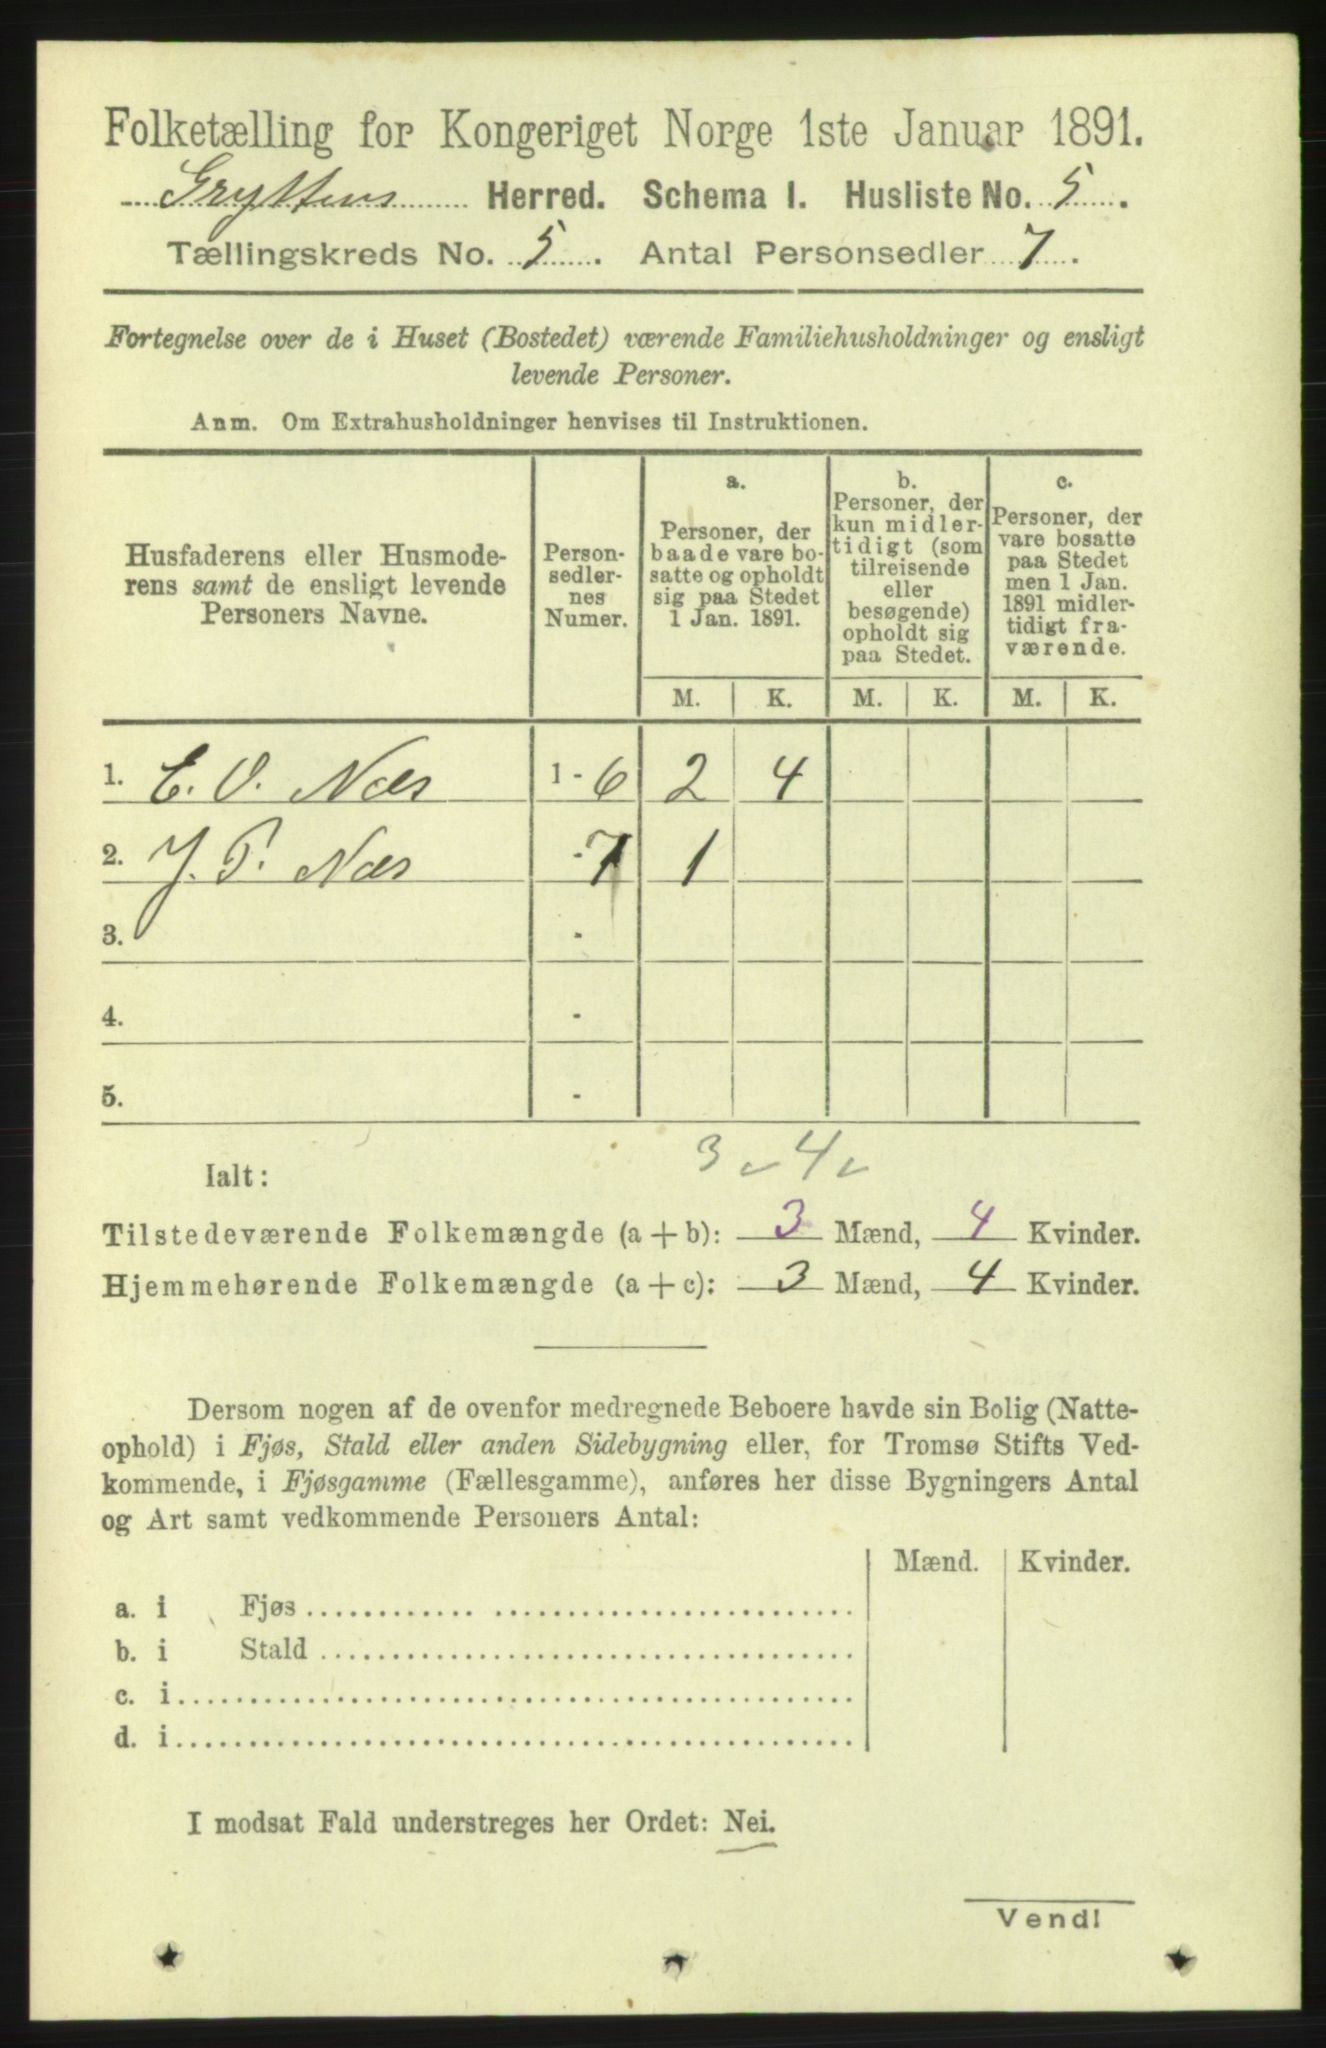 Folketælling for Kongeriget Norge 1ste Januar 1891.
Gryttens Herred. Schema I. Husliste No. 5.
Tællingskreds No. 5. Antal Personsedler 7.
Fortegnelse over de i Huset (Bostedet) værende Familiehusholdninger og ensligt
levende Personer.
Anm. Om Extrahusholdninger henvises til Instruktionen.
Husfaderens eller Husmode-
rens samt de ensligt levende
Personers Navne.
Person-
sedler-
nes
Numer.
a.
Personer, der
baade vare bo-
satte og opholdt
sig paa Stedet
1 Jan. 1891.
b.
Personer, der
kun midler-
tidigt (som
tilreisende
eller
besøgende)
opholdt sig
paa Stedet.
c.
Personer, der
vare bosatte
paa Stedet
men 1 Jan.
1891 midler-
tidigt fra-
værende.
M. K. M. K. M. K.
1. E. O. Næs 1 - 6 2 4
2. J. P. Næs - 7 1
3. -
4. -
5. -
3 4
Ialt:
Tilstedeværende Folkemængde (a + b): 3 Mænd, 4 Kvinder.
Hjemmehørende Folkemængde (a + c): 3 Mænd, 4 Kvinder.
Dersom nogen af de ovenfor medregnede Beboere havde sin Bolig (Natte-
ophold) i Fjøs, Stald eller anden Sidebygning eller, for Tromsø Stifts Ved-
kommende, i Fjøsgamme (Fællesgamme), anføres her disse Bygningers Antal
og Art samt vedkommende Personers Antal:
Mænd. Kvinder.
a. i Fjøs
b. i Stald
c. i
d. i
I modsat Fald understreges her Ordet: Nei.
Vend!